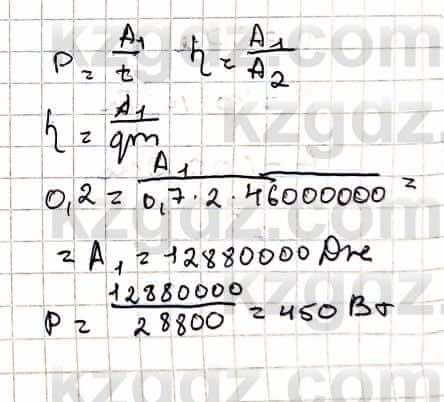 P = A₁/t η = A₁/A₂
η = A₁/qm
0,2 = A₁/(0,7·2·46000000) =
= A₁ = 12880000 Дж
P = 12880000/28800 = 450 Вт
kzgdz.com